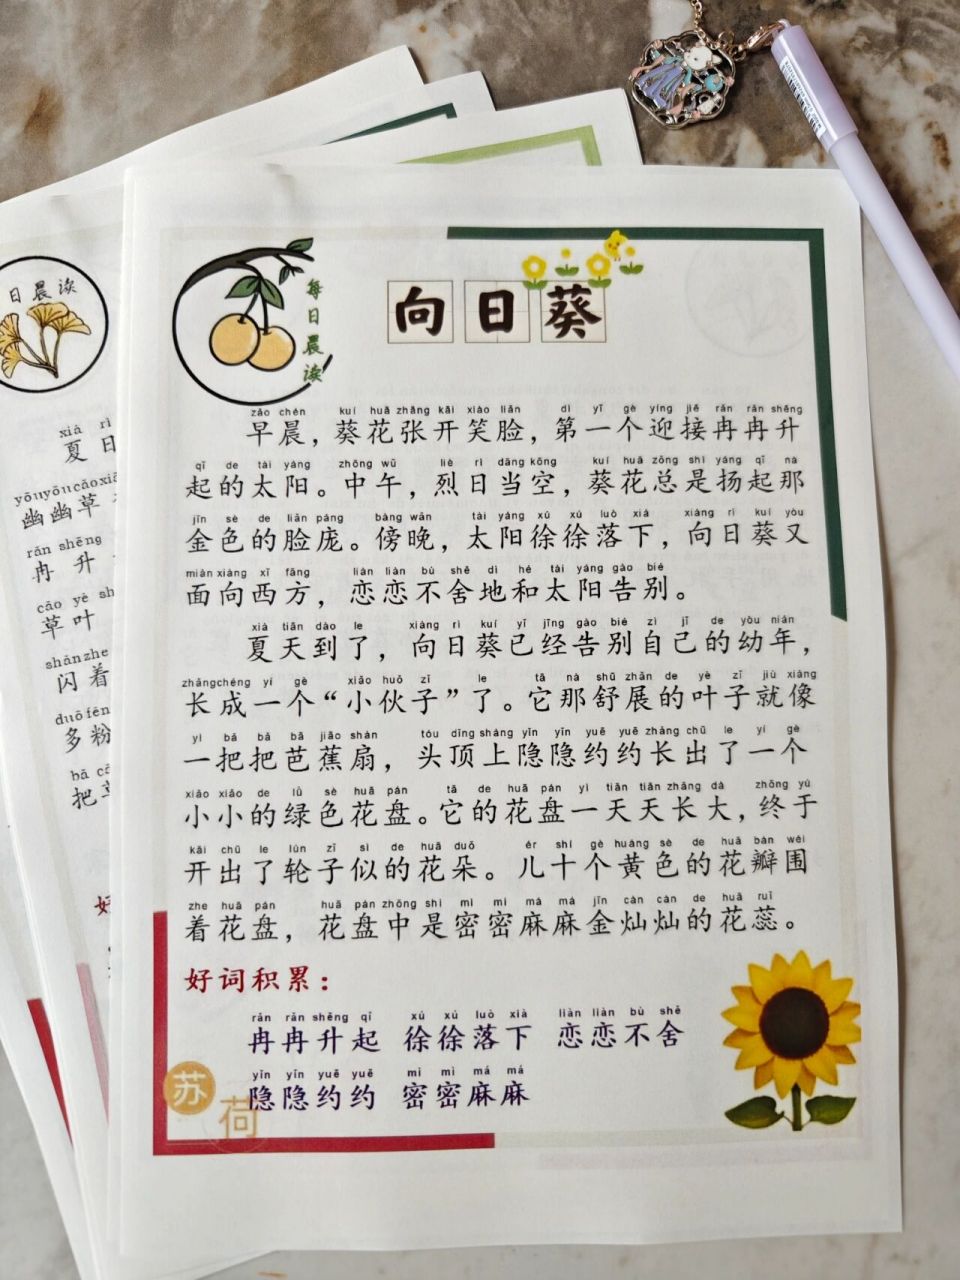 每日晨读
向日葵
zǎo chén kuí huā zhāng kāi xiào liǎn dì yī gè yíng jiē rǎn rǎn shēng
早晨，葵花张开笑脸，第一个迎接冉冉升
qǐ de tài yáng zhōng wǔ liè rì dāng kōng kuí huā zǒng shì yáng qǐ nà
起的太阳。中午，烈日当空，葵花总是扬起那
jīn sè de liǎn páng bàng wǎn tài yáng xú xú luò xià xiàng rì kuí yòu
金色的脸庞。傍晚，太阳徐徐落下，向日葵又
miàn xiàng xī fāng liàn liàn bù shě dì hé tài yáng gào bié
面向西方，恋恋不舍地和太阳告别。
xià tiān dào le xiàng rì kuí yǐ jīng gào bié zì jǐ de yòu nián
夏天到了，向日葵已经告别自己的幼年，
zhǎng chéng yí gè xiǎo huǒ zǐ le tā nà shū zhǎn de yè zǐ jiù xiàng
长成一个“小伙子”了。它那舒展的叶子就像
yì bǎ bǎ bā jiāo shàn tóu dǐng shàng yǐn yǐn yuē yuē zhǎng chū le yí gè
一把把芭蕉扇，头顶上隐隐约约长出了一个
xiǎo xiǎo de lǜ sè huā pán tā de huā pán yì tiān tiān zhǎng dà zhōng yú
小小的绿色花盘。它的花盘一天天长大，终于
kāi chū le lún zǐ sì de huā duǒ ér shí gè huáng sè de huā bàn wéi
开出了轮子似的花朵。儿十个黄色的花瓣围
zhe huā pán huā pán zhōng shì mì mì má má jīn càn càn de huā ruǐ
着花盘，花盘中是密密麻麻金灿灿的花蕊。
好词积累：
rǎn rǎn shēng qǐ xú xú luò xià liàn liàn bù shě
冉冉升起 徐徐落下 恋恋不舍
yǐn yǐn yuē yuē mì mì má má
隐隐约约 密密麻麻
苏
荷
日晨读
xià rì
夏日
yōu yōu cǎo xiā
幽幽草
rǎn shēng
冉升
cǎo yè
草叶
shǎn zhe
闪着
duō fēn
多粉
bǎ
把
好